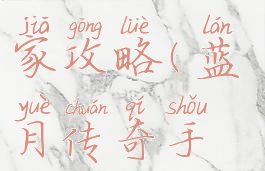 jiā gōng lüè lán
家攻略(蓝
yuè chuán qí shǒu
月传奇手